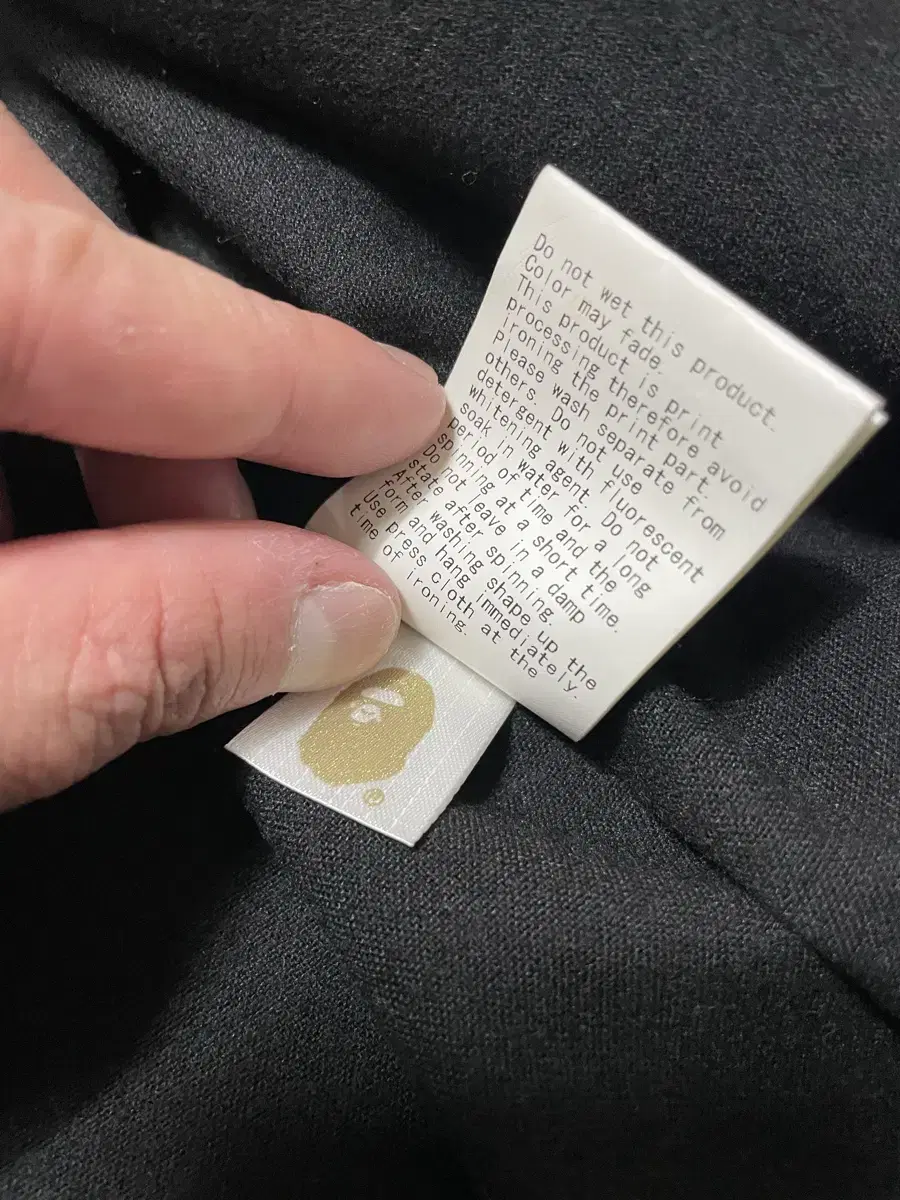 Do not wet this product.
Color may fade.
This product is print
processing therefore avoid
ironing the print part.
Please wash separate from
others. Do not use
detergent with fluorescent
whitening agent. Do not
soak in water for a long
period of time and the
spinning at a short time.
Do not leave in a damp
state after spinning.
After washing shape up the
form and hang immediately.
Use press cloth at the
time of ironing.
®